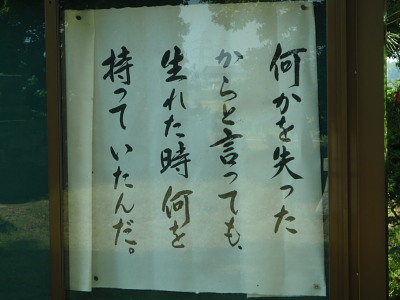 何かを失った
からと言っても、
生れた時何を
持っていたんだ。